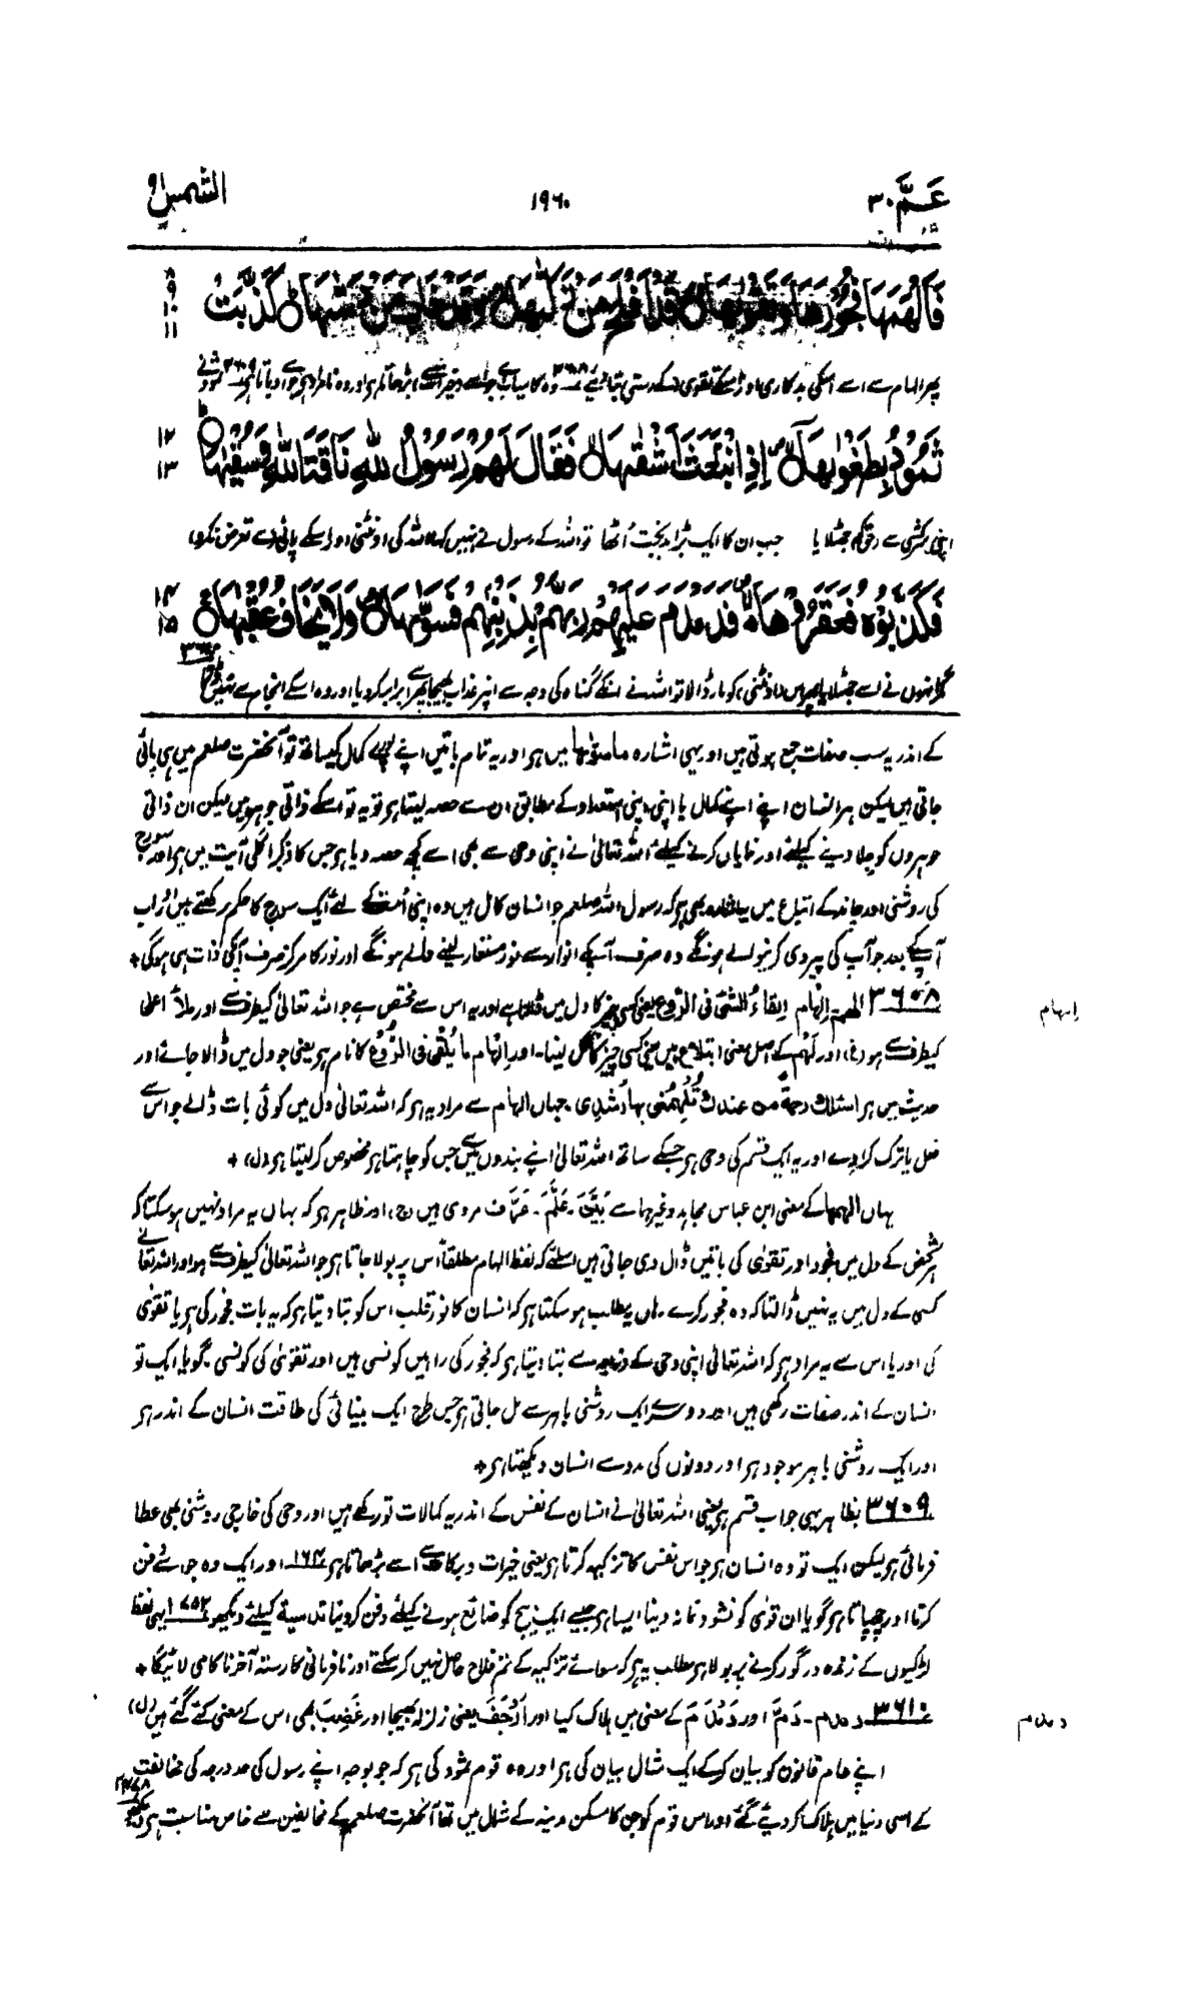 عَمَّ ۳۰
۱۹۶۰
الشمس ۹۱
فَاَلْهَمَهَا فُجُوْرَهَا وَتَقْوٰىهَا قَدْ اَفْلَحَ مَنْ زَكّٰىهَا وَقَدْ خَابَ مَنْ دَسّٰىهَا كَذَّبَتْ
۸
۹
۱۰
۱۱
پھر الہام سے اسے اسکی بدکاری اور اسکے تقویٰ کے رستے بتائے ۳۶۰۸ وہ کامیاب ہے جو اسے بڑھاتا ہے اور وہ نامراد ہے جو اسے دباتا ہے ۳۶۰۹ ثمود نے
ثَمُوْدُ بِطَغْوٰىهَا اِذِ انْۢبَعَثَ اَشْقٰىهَا فَقَالَ لَهُمْ رَسُوْلُ اللّٰهِ نَاقَةَ اللّٰهِ وَسُقْيٰهَا
۱۲
۱۳
اپنی سرکشی سے حق کو جھٹلایا جب ان کا ایک بڑا بدبخت اُٹھا تو اللہ کے رسول نے انہیں کہا اللہ کی اونٹنی اور اسکے پانی سے تعرض نہ کرو
فَكَذَّبُوْهُ فَعَقَرُوْهَا فَدَمْدَمَ عَلَيْهِمْ رَبُّهُمْ بِذَنْۢبِهِمْ فَسَوّٰىهَا وَلَا يَخَافُ عُقْبٰهَا
۱۴
۱۵
مگر انہوں نے اسے جھٹلایا پھر اس (اونٹنی) کو مار ڈالا تو اللہ نے انکے گناہ کی وجہ سے انپر عذاب بھیجا پھر اسے برابر کر دیا اور وہ اسکے انجام سے نہیں ڈرتا
کے اندر یہ سب صفات جمع ہوتی ہیں اور یہی اشارہ ما سوّٰىها میں ہے اور یہ تمام باتیں اپنے پورے کمال کیساتھ تو آنحضرت صلعم میں ہی پائی
جاتی ہیں لیکن ہر انسان اپنے اپنے کمال یا اپنی اپنی استعداد کے مطابق ان سے حصہ لیتا ہے تو یہ تو اسکے ذاتی جوہر ہیں لیکن ان ذاتی
جوہروں کو جلا دینے کیلئے اور نمایاں کرنے کیلئے اللہ تعالیٰ نے اپنی وحی سے بھی اسے کچھ حصہ دیا ہے جس کا ذکر اگلی آیت میں ہے اور سورج
کی روشنی اور چاند کے اتباع میں یہ اشارہ بھی ہے کہ رسول اللہ صلعم جو انسان کامل ہیں وہ اپنی اُمت کے لئے ایک سورج کا حکم رکھتے ہیں اور اب
آپکے بعد جو آپ کی پیروی کرنیوالے ہونگے وہ صرف آپکے انوار سے نور مستعار لینے والے ہونگے اور نور کا مرکز صرف آپکی ذات ہی ہوگی +
۳۶۰۸ الهم الہام اِلقاءُ الشئ فی الرَّوع یعنی کسی چیز کا دل میں ڈالنا ہے اور یہ اس سے مختص ہے جو اللہ تعالیٰ کیطرف سے اور ملأ اعلیٰ
الہام
کیطرف سے ہو (غ) اور لَهْم کے اصل معنی ابتلاع ہیں یعنی کسی چیز کا نگل لینا۔ اور الہام ما یُلقٰی فی الرُّوع کا نام ہے یعنی جو دل میں ڈالا جائے اور
حدیث میں ہے اسئلك رحمة من عندك تُلْهِمُنى بها رُشدى جہاں الہام سے مراد یہ ہے کہ اللہ تعالیٰ دل میں کوئی بات ڈالے جو اس سے
فعل یا ترک کرا دے اور یہ ایک قسم کی وحی ہے جسکے ساتھ اللہ تعالیٰ اپنے بندوں میں سے جس کو چاہتا ہے مخصوص کر لیتا ہے (ل) +
یہاں الهمها کے معنی ابن عباس مجاہد وغیرہما سے بَيَّنَ۔ عَلَّمَ۔ عَرَّفَ مروی ہیں (ج) اور ظاہر ہے کہ یہاں یہ مراد نہیں ہو سکتا کہ
ہر شخص کے دل میں فجور اور تقویٰ کی باتیں ڈال دی جاتی ہیں اسلئے کہ لفظ الہام مطلقاً اس پر بولا جاتا ہے جو اللہ تعالیٰ کیطرف سے ہو اور اللہ تعالیٰ
کسی کے دل میں یہ نہیں ڈالتا کہ وہ فجور کرے ہاں یہ مطلب ہو سکتا ہے کہ انسان کا نور قلب اس کو بتا دیتا ہے کہ یہ بات فجور کی ہے یا تقویٰ
کی اور یا اس سے یہ مراد ہے کہ اللہ تعالیٰ اپنی وحی کے ذریعہ سے بتا دیتا ہے کہ فجور کی راہیں کونسی ہیں اور تقویٰ کی کونسی۔ گویا ایک تو
انسان کے اندر صفات رکھی ہیں اور دوسرے ایک روشنی باہر سے مل جاتی ہے جس طرح ایک بینائی کی طاقت انسان کے اندر ہے
اور ایک روشنی باہر موجود ہے اور دونوں کی مدد سے انسان دیکھتا ہے +
۳۶۰۹ بظاہر یہی جواب قسم ہے یعنی اللہ تعالیٰ نے انسان کے نفس کے اندر یہ کمالات تو رکھے ہیں اور وحی کی خارجی روشنی بھی عطا
فرمائی ہے لیکن ایک تو وہ انسان ہے جو اس نفس کا تزکیہ کرتا ہے یعنی خیرات و برکات سے اسے بڑھاتا ہے ۱۶۴ اور ایک وہ جو اسے دفن
کرتا اور چھپاتا ہے گویا ان قویٰ کو نشو و نما نہ دینا ایسا ہے جیسے ایک بیج کو ضائع ہونے کیلئے دفن کر دینا تدسیۃ کیلئے دیکھو ۱۷۵۲ یہی لفظ
لڑکیوں کے زندہ درگور کرنے پر بولا ہے مطلب یہ ہے کہ سوائے تزکیہ کے تم فلاح حاصل نہیں کر سکتے اور نافرمانی کا رستہ آخر ناکامی لائیگا +
۳۶۱۰ دمدم۔ دَمَّ اور دَمْدَمَ کے معنی ہیں ہلاک کیا اور اَرْجَفَ یعنی زلزلہ بھیجا اور غَضِبَ بھی اس کے معنی کئے گئے ہیں (ل)
دمدم
اپنے عام قانون کو بیان کرکے ایک مثال بیان کی ہے اور وہ قوم ثمود کی ہے کہ جو بوجہ اپنے رسول کی حد درجہ کی مخالفت
کے اسی دنیا میں ہلاک کر دیئے گئے اور اس قوم کو جن کا مسکن مدینہ کے شمال میں تھا آنحضرت صلعم کے مخالفین سے خاص مناسبت ہے دیکھو